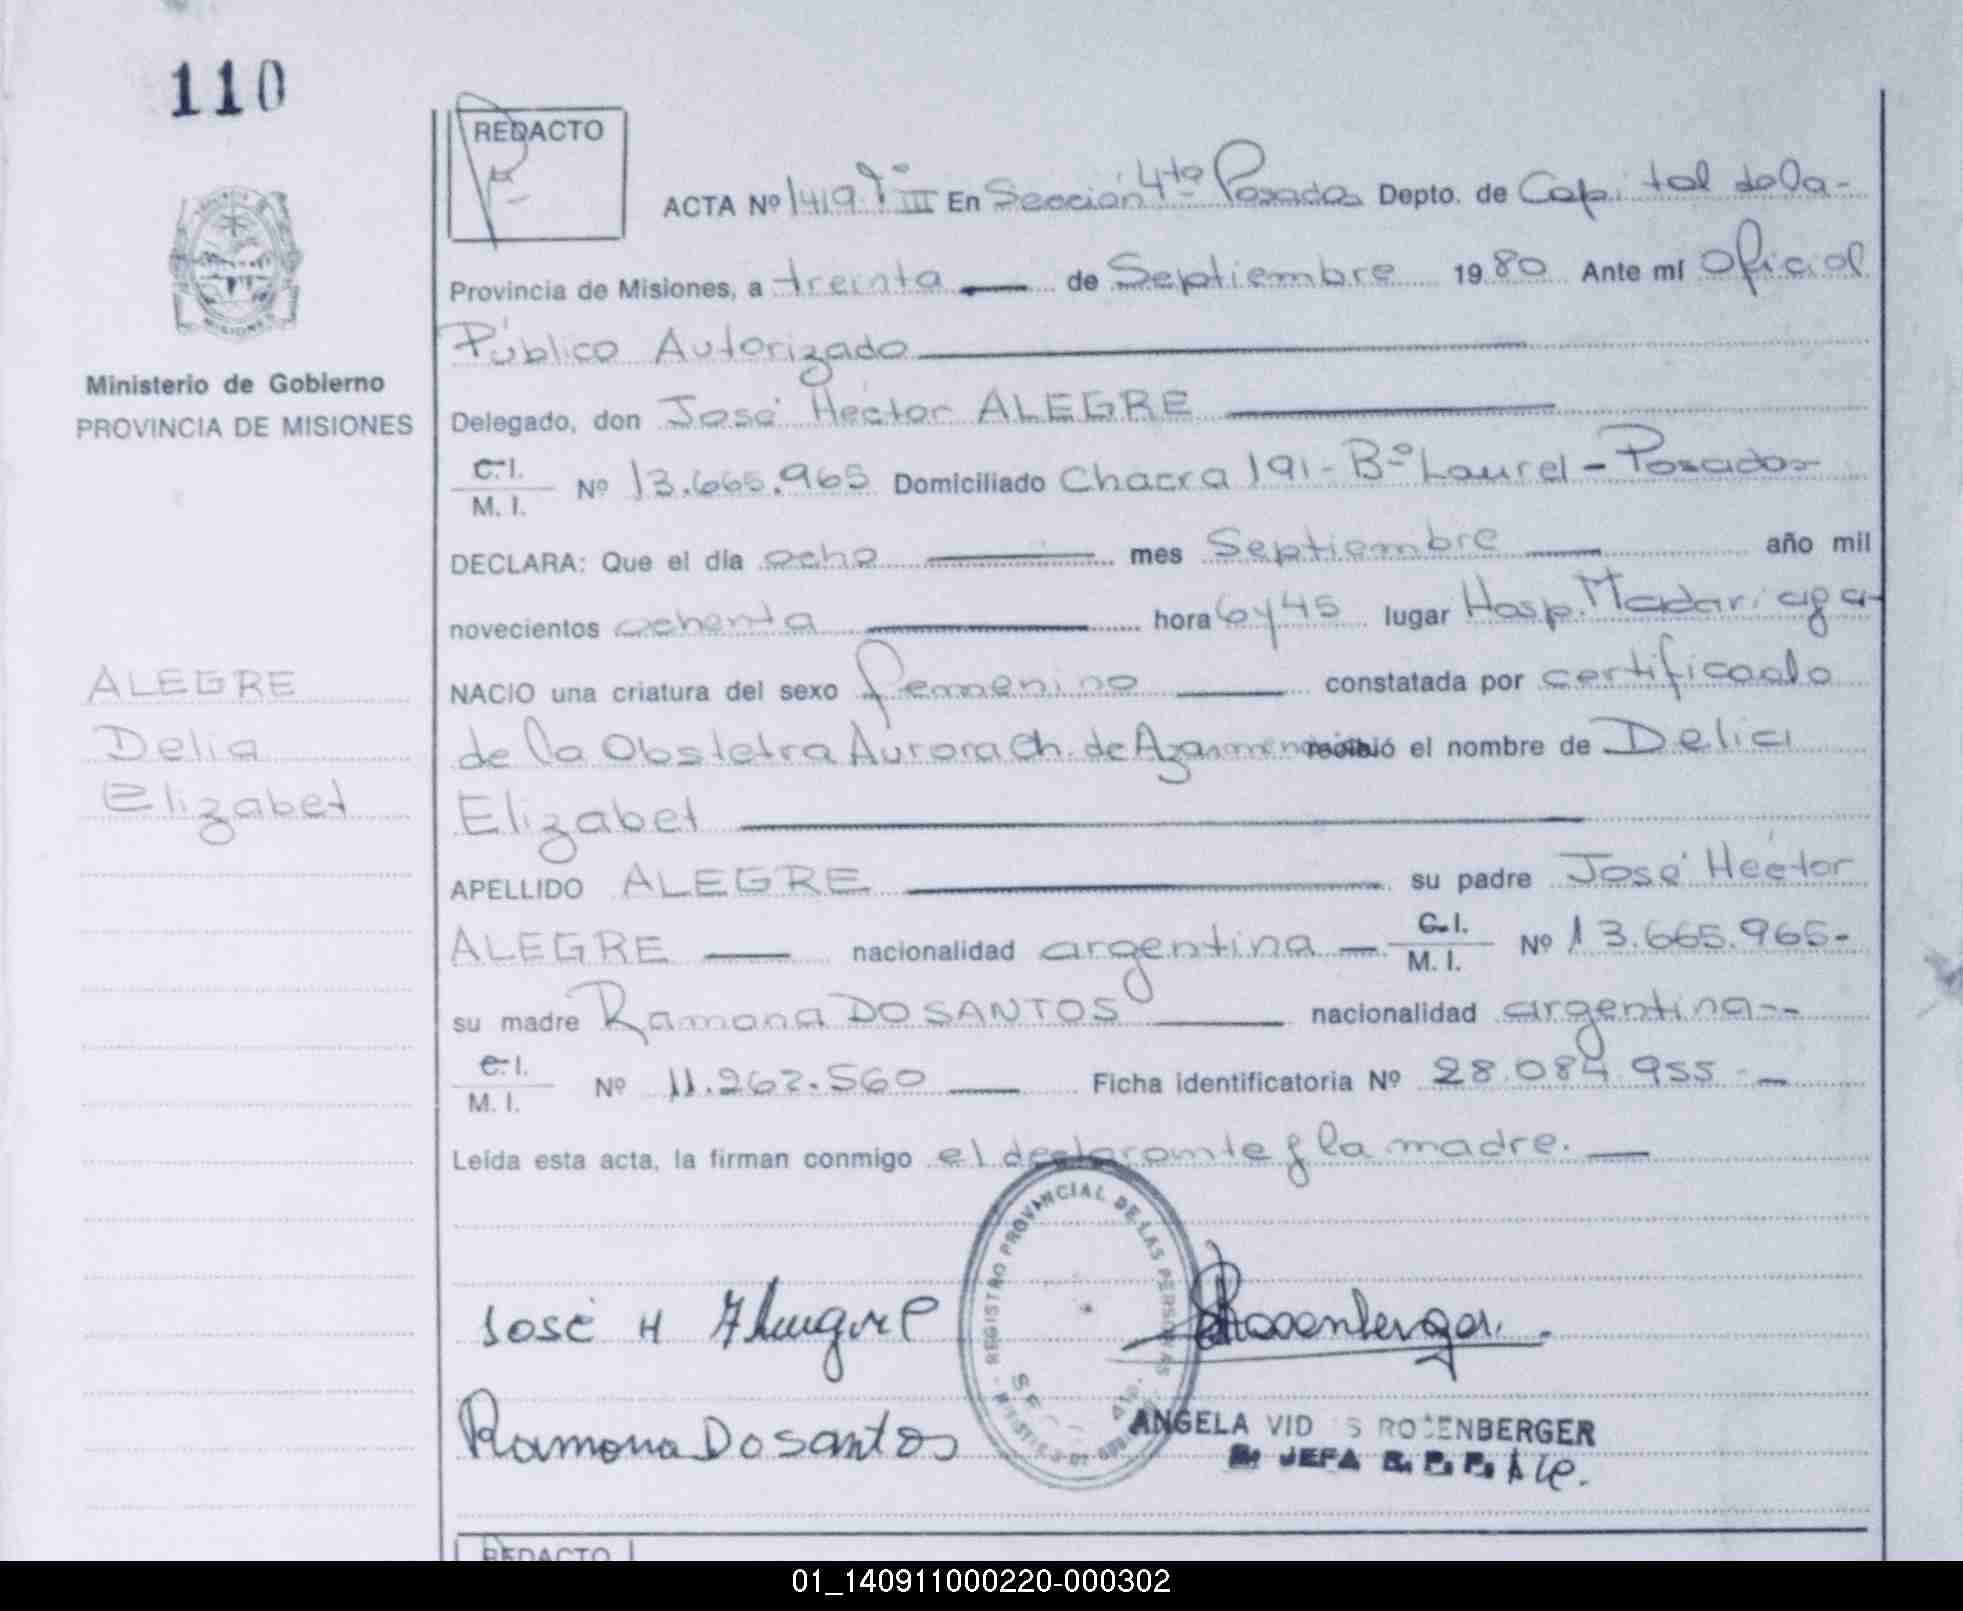 110
REDACTO
ACTA Nº 1419 Tº III En Sección 4ta Posadas Depto. de Capital de la-
Provincia de Misiones, a treinta de Septiembre 1980 Ante mí Oficial
Público Autorizado
Ministerio de Gobierno
PROVINCIA DE MISIONES
Delegado, don José Héctor ALEGRE
C.I.
M. I. Nº 13.665.965 Domiciliado Chacra 191 - Bº Laurel - Posadas
DECLARA: Que el día ocho mes Septiembre año mil
novecientos ochenta hora 6 y 45 lugar Hosp. Madariaga-
ALEGRE
Delia
Elizabet
NACIO una criatura del sexo femenino constatada por certificado
de la Obstetra Aurora Ch. de recibió el nombre de Delia
Elizabet
APELLIDO ALEGRE su padre José Héctor
ALEGRE nacionalidad argentina - C.I.
M. I. Nº 13.665.965-
su madre Ramona DO SANTOS nacionalidad argentina--
C.I.
M. I. Nº 11.262.560 Ficha identificatoria Nº 28.084.955 -
Leída esta acta, la firman conmigo el declarante y la madre.
REGISTRO PROVINCIAL DE LAS PERSONAS
José H
Rosenberger
Ramona Do santos
ANGELA VID S ROSENBERGER
JEFA R. P. P.
REDACTO
01_140911000220-000302